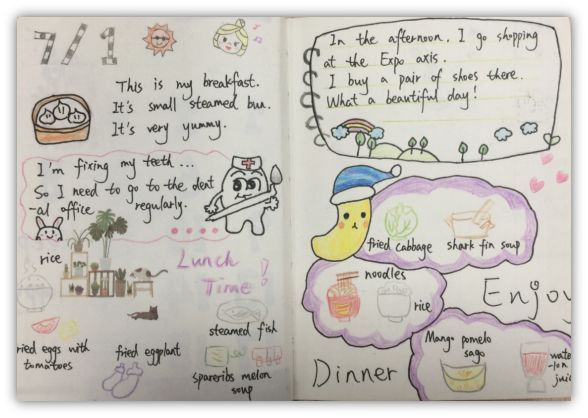 7/1
This is my breakfast.
It's small steamed bun.
It's very yummy.
I'm fixing my teeth...
So I need to go to the dent
-al office regularly.
rice
Lunch
Time!
steamed fish
ried eggs with
tomatoes
fried eggplant
spareribs melon
soup
In the afternoon, I go shopping
at the Expo axis.
I buy a pair of shoes there.
What a beautiful day!
fried cabbage
shark fin soup
noodles
rice
Enjoy
Dinner
Mango pomelo
sago
wate
-lon
juic